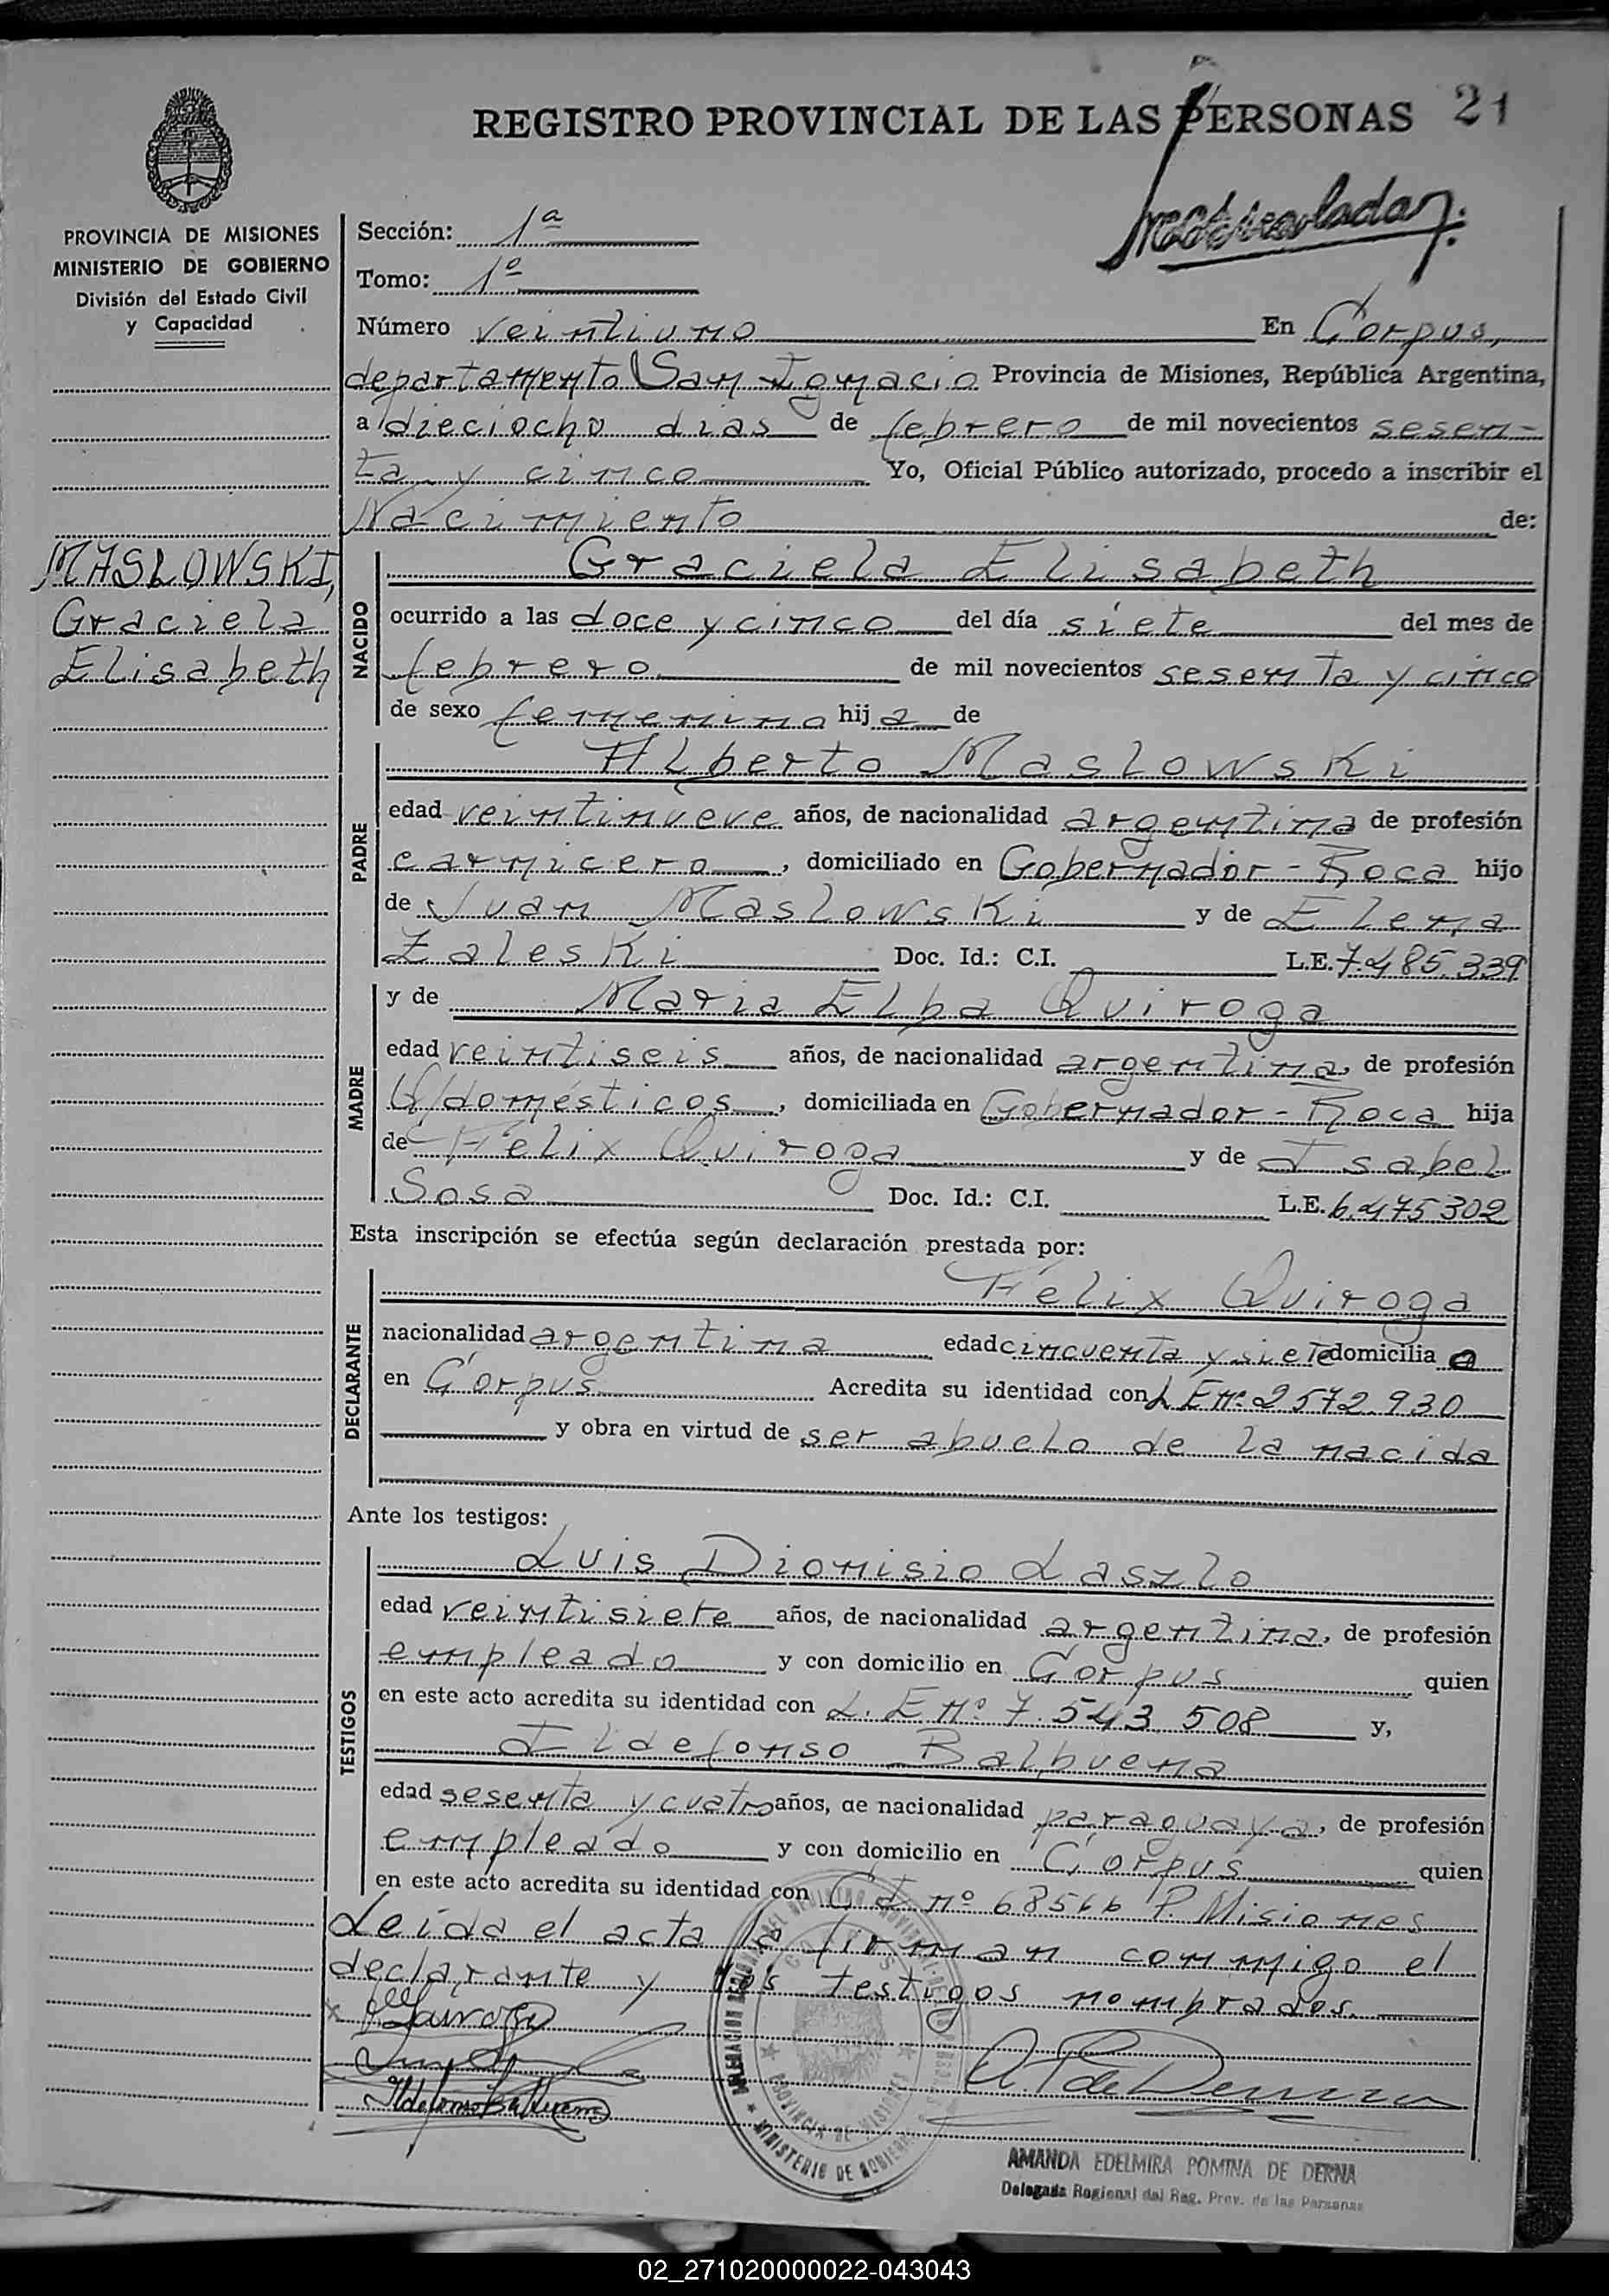 REGISTRO PROVINCIAL DE LAS PERSONAS 21
PROVINCIA DE MISIONES
MINISTERIO DE GOBIERNO
División del Estado Civil
y Capacidad
Sección: 1ª
Tomo: 1º
Número veintiuno En Corpus,
departamento San Ignacio Provincia de Misiones, República Argentina,
a dieciocho dias de febrero de mil novecientos sesen-
ta y cinco Yo, Oficial Público autorizado, procedo a inscribir el
Nacimiento de:
MASLOWSKI,
Graciela
Elisabeth
NACIDO
Graciela Elisabeth
ocurrido a las doce y cinco del día siete del mes de
febrero de mil novecientos sesenta y cinco
de sexo femenino hij a de
PADRE
Alberto Maslowski
edad veintinueve años, de nacionalidad argentina de profesión
carnicero, domiciliado en Gobernador-Roca hijo
de Juan Maslowski y de Elena
Zaleski Doc. Id.: C.I. L.E. 7.485.339
MADRE
y de Maria Elba Quiroga
edad veintiseis años, de nacionalidad argentina, de profesión
Q/domésticos, domiciliada en Gobernador-Roca hija
de Felix Quiroga y de Isabel
Sosa Doc. Id.: C.I. L.E. 6.475 302
Esta inscripción se efectúa según declaración prestada por:
DECLARANTE
Felix Quiroga
nacionalidad argentina edad cincuenta y siete domicilia o
en Corpus Acredita su identidad con L Enº 2572.930
y obra en virtud de ser abuelo de la nacida
Ante los testigos:
TESTIGOS
Luis Dionisio Laszlo
edad veintisiete años, de nacionalidad argentina, de profesión
empleado y con domicilio en Corpus quien
en este acto acredita su identidad con L. E nº 7.543 508 y,
Ildefonso Balbuena
edad sesenta y cuatro años, de nacionalidad paraguaya, de profesión
empleado y con domicilio en Corpus quien
en este acto acredita su identidad con C I nº 68566 P. Misiones
Leida el acta la firman conmigo el
declarante y los testigos nombrados.
Ildefonso Balbuena
MINISTERIO DE GOBIERNO
PROVINCIA DE MISIONES
AMANDA EDELMIRA POMINA DE DERNA
Delegada Regional del Reg. Prov. de las Personas
02_271020000022-043043